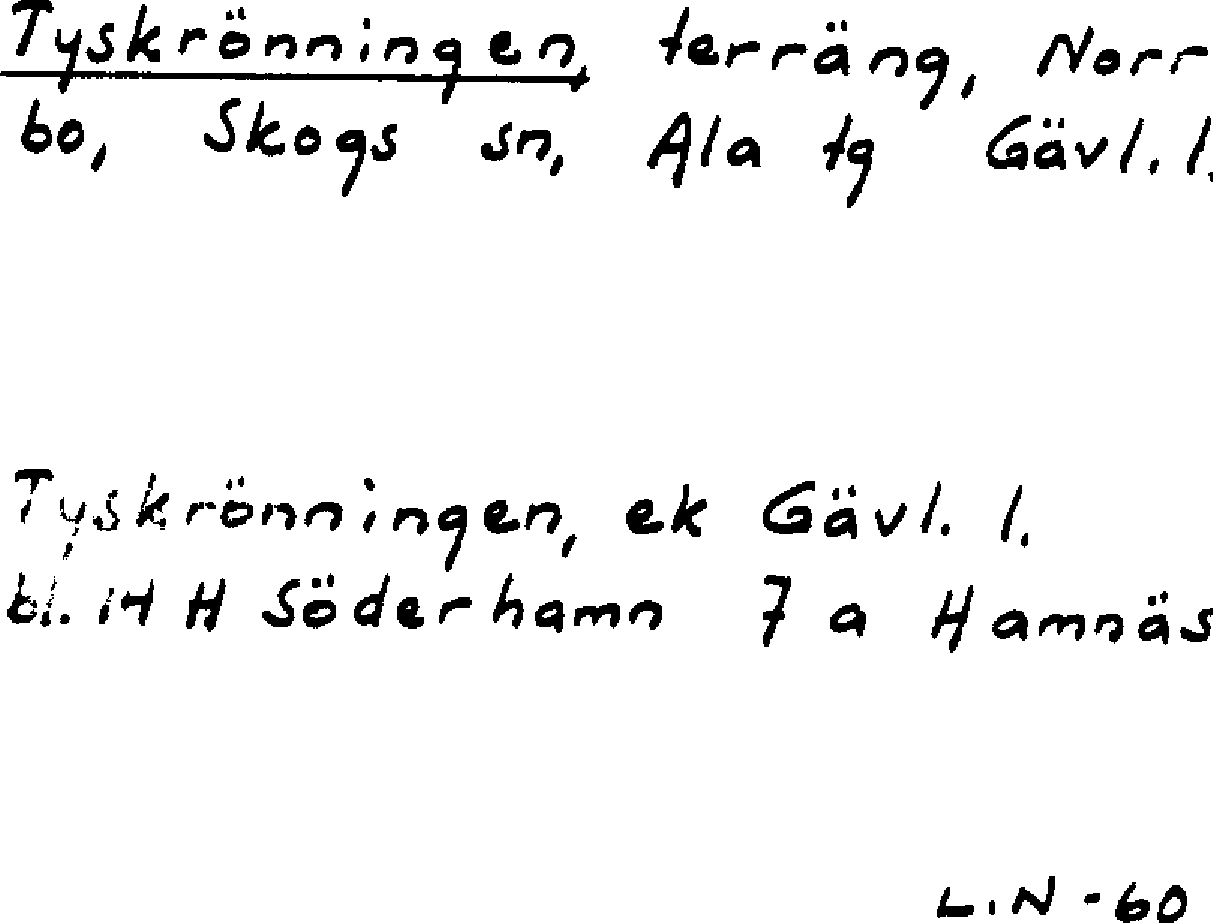 Tyskrönningen, terräng, Norr
bo, Skogs sn, Ala tg Gävl. l.
Tyskrönningen, ek Gävl. l.
bl. 14 H Söderhamn 7 a Hamnäs
L.N - 60